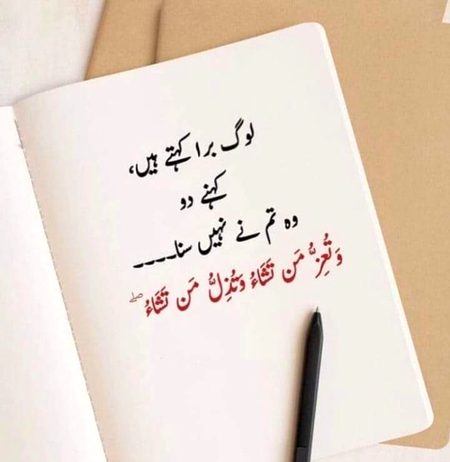 لوگ برا کہتے ہیں،
کہنے دو
وہ تم نے نہیں سنا۔۔۔۔
وَتُعِزُّ مَن تَشَاءُ وَتُذِلُّ مَن تَشَاءُ ۖ